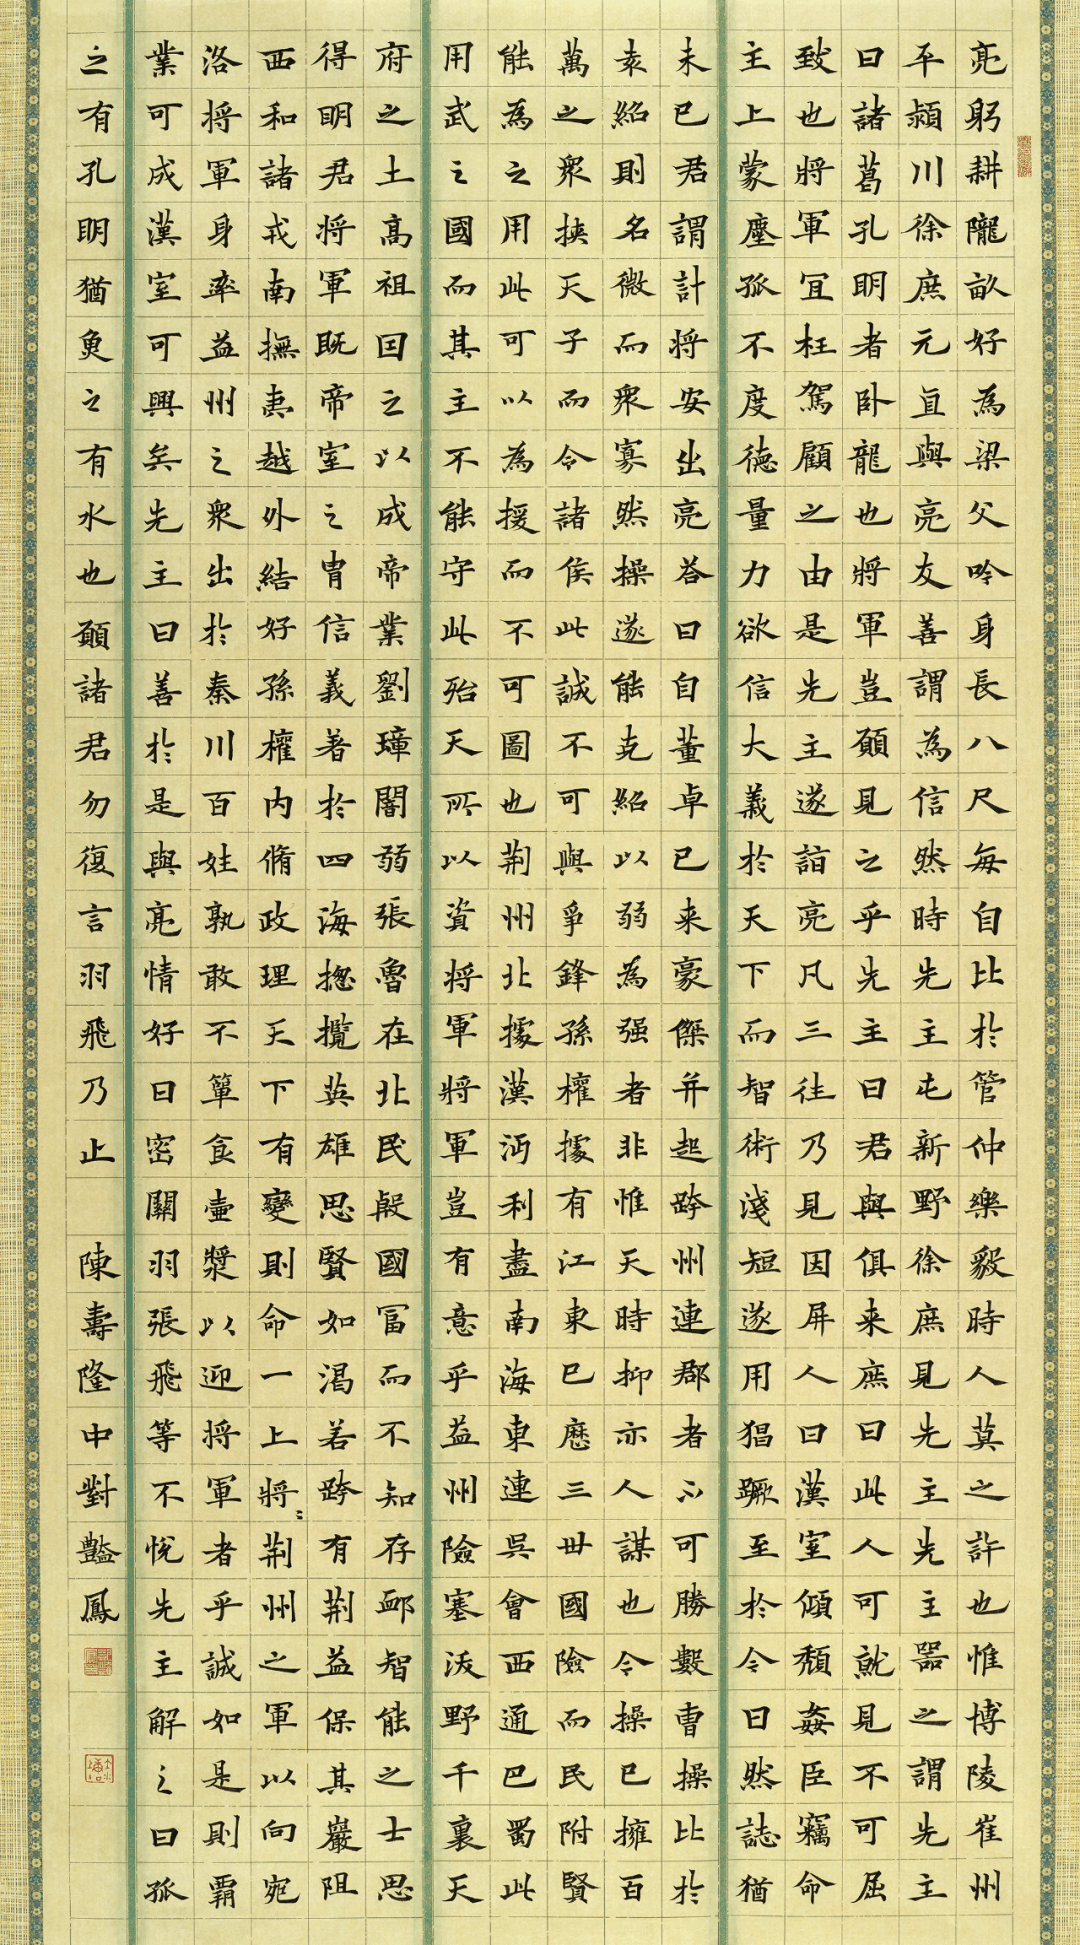 亮躬耕隴畝好為梁父吟身長八尺每自比於管仲樂毅時人莫之許也惟博陵崔州
平潁川徐庶元直與亮友善謂為信然時先主屯新野徐庶見先主先主器之謂先主
曰諸葛孔明者卧龍也將軍豈願見之乎先主曰君與俱来庶曰此人可就見不可屈
致也將軍宜枉駕顧之由是先主遂詣亮凡三往乃見因屏人曰漢室傾頹姦臣竊命
主上蒙塵孤不度德量力欲信大義於天下而智術淺短遂用猖蹶至於今日然誌猶
未已君謂計將安出亮答曰自董卓已来豪傑并起跨州連郡者不可勝數曹操比於
袁紹則名微而衆寡然操遂能克紹以弱為强者非惟天時抑亦人謀也今操已擁百
萬之衆挾天子而令諸侯此誠不可與爭鋒孫權據有江東已歷三世國險而民附賢
能為之用此可以為援而不可圖也荆州北據漢沔利盡南海東連吳會西通巴蜀此
用武之國而其主不能守此殆天所以資將軍將軍豈有意乎益州險塞沃野千裏天
府之土高祖因之以成帝業劉璋闇弱張魯在北民殷國富而不知存卹智能之士思
得明君將軍既帝室之胄信義著於四海揔攬英雄思賢如渴若跨有荆益保其巖阻
西和諸戎南撫夷越外結好孫權内脩政理天下有變則命一上將荆州之軍以向宛
洛將軍身率益州之衆出於秦川百姓孰敢不簞食壺漿以迎將軍者乎誠如是則霸
業可成漢室可興矣先主曰善於是與亮情好日密關羽張飛等不悅先主解之曰孤
之有孔明猶魚之有水也願諸君勿復言羽飛乃止 陳壽隆中對豔鳳